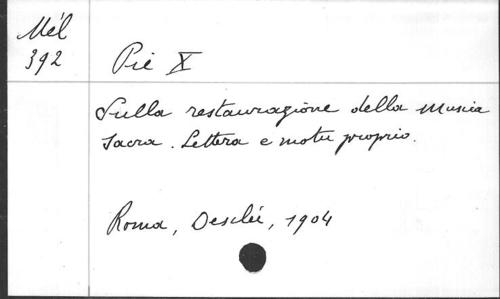 Mél
392
Pie X
Sulla restaurazione della Musica
Sacra. Lettera e motu proprio.
Roma, Desclée, 1904